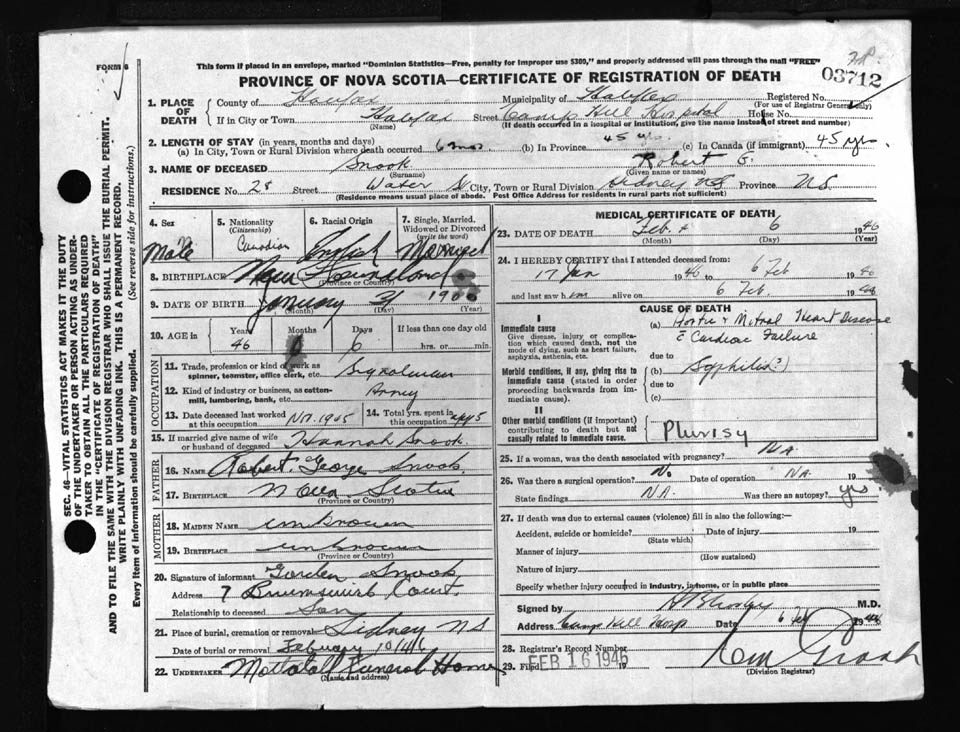 FORM 6
This form if placed in an envelope, marked "Dominion Statistics—Free, penalty for improper use $300," and properly addressed will pass through the mail "FREE"
PROVINCE OF NOVA SCOTIA—CERTIFICATE OF REGISTRATION OF DEATH
03712
1. PLACE OF DEATH
County of Halifax Municipality of Halifax Registered No.
(For use of Registrar General only)
If in City or Town Halifax Street Camp Hill Hospital House No.
(Name) (If death occurred in a hospital or institution, give the name instead of street and number)
2. LENGTH OF STAY (in years, months and days)
(a) In City, Town or Rural Division where death occurred 6 mos (b) In Province 45 yrs. (c) In Canada (if immigrant) 45 yrs
3. NAME OF DECEASED Snook Robert G.
(Surname) (Given name or names)
RESIDENCE No. 28 Street Water St City, Town or Rural Division Sidney NS Province N.S.
(Residence means usual place of abode. Post Office Address for residents in rural parts not sufficient)
4. Sex
Male
5. Nationality (Citizenship)
Canadian
6. Racial Origin
English
7. Single, Married, Widowed or Divorced (write the word)
Married
8. BIRTHPLACE
(Province or Country)
9. DATE OF BIRTH January 31 1900
(Month) (Day) (Year)
10. AGE in Years Months Days If less than one day old
46 6 hrs. or min.
OCCUPATION
11. Trade, profession or kind of work as spinner, teamster, office clerk, etc.
12. Kind of industry or business, as cotten-mill, lumbering, bank, etc. Army
13. Date deceased last worked at this occupation
14. Total yrs. spent in this occupation
15. If married give name of wife or husband of deceased Hannah Snook.
FATHER
16. NAME Robert George Snook
17. BIRTHPLACE Nova Scotia
(Province or Country)
MOTHER
18. MAIDEN NAME unknown
19. BIRTHPLACE unknown
(Province or Country)
20. Signature of informant Gorden Snook
Address 7 Court.
Relationship to deceased Son
21. Place of burial, cremation or removal Sidney NS
Date of burial or removal February 10/46
22. UNDERTAKER Funeral Home
(Name and address)
MEDICAL CERTIFICATE OF DEATH
23. DATE OF DEATH Feb. 6 1946
(Month) (Day) (Year)
24. I HEREBY CERTIFY that I attended deceased from:
17 Jan 1946 to 6 Feb 1946
and last saw him alive on 6 Feb. 1946
I
Immediate cause
Give disease, injury or complication which caused death, not the mode of dying, such as heart failure, asphyxia, asthenia, etc.
Morbid conditions, if any, giving rise to immediate cause (stated in order proceeding backwards from immediate cause).
II
Other morbid conditions (if important) contributing to death but not causally related to immediate cause.
CAUSE OF DEATH
(a) Aortic & Mitral Heart Disease
c Cardiac Failure
due to
(b) Syphilis(?)
due to
(c)
Plurisy
25. If a woman, was the death associated with pregnancy? NA
26. Was there a surgical operation? No Date of operation NA. 19
State findings NA. Was there an autopsy? yes
27. If death was due to external causes (violence) fill in also the following:—
Accident, suicide or homicide? Date of injury 19
(State which)
Manner of injury
(How sustained)
Nature of injury
Specify whether injury occurred in industry, in home, or in public place
Signed by M.D.
Address Camp Hill Hosp Date 6 Feb 1946
28. Registrar's Record Number
29. Filed FEB 16 1946 19
(Division Registrar)
SEC. 46—VITAL STATISTICS ACT MAKES IT THE DUTY OF THE UNDERTAKER OR PERSON ACTING AS UNDERTAKER TO OBTAIN ALL THE PARTICULARS REQUIRED IN THE "CERTIFICATE OF REGISTRATION OF DEATH" AND TO FILE THE SAME WITH THE DIVISION REGISTRAR WHO SHALL ISSUE THE BURIAL PERMIT.
WRITE PLAINLY WITH UNFADING INK. THIS IS A PERMANENT RECORD.
Every item of information should be carefully supplied. (See reverse side for instructions.)